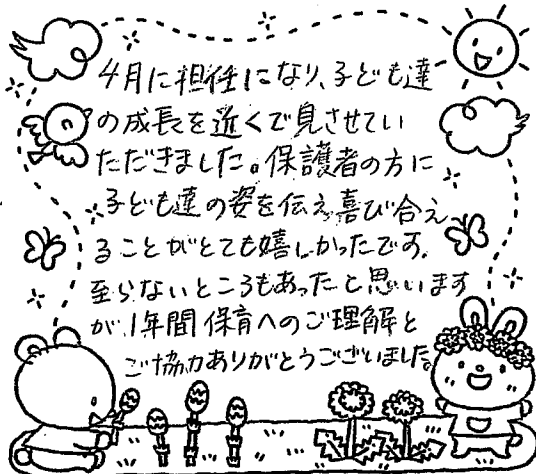 4月に担任になり、子ども達
の成長を近くで見させてい
ただきました。保護者の方に
子ども達の姿を伝え、喜び合え
ることがとても嬉しかったです。
至らないところもあったと思います
が、1年間保育へのご理解と
ご協力ありがとうございました。